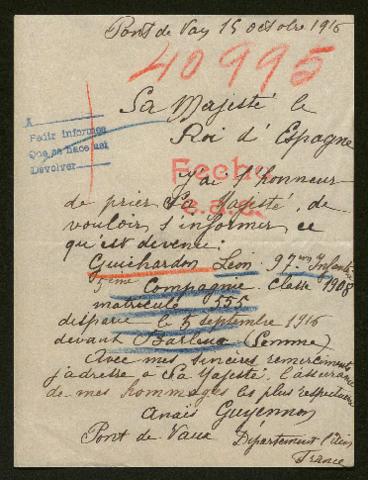 Pont de Vay 15 octobre 1916
40995
Sa Majesté le
Roi d'Espagne
A
Pedir informes
Que se hace así
Devolver
Fecho
J'ai l'honneur
de prier Sa Majesté, de
vouloir s'informer ce
qu'est devenu:
Guichardon Léon 97eme Infanterie
5eme Compagnie classe 1908
matricule 555
disparu le 5 septembre 1916
devant Barleux (Somme)
Avec mes sincères remerciements
j'adresse à Sa Majesté l'assurance
de mes hommages les plus respectueux
Anaïs Guyennon
Pont de Vaux Département l'Ain
France